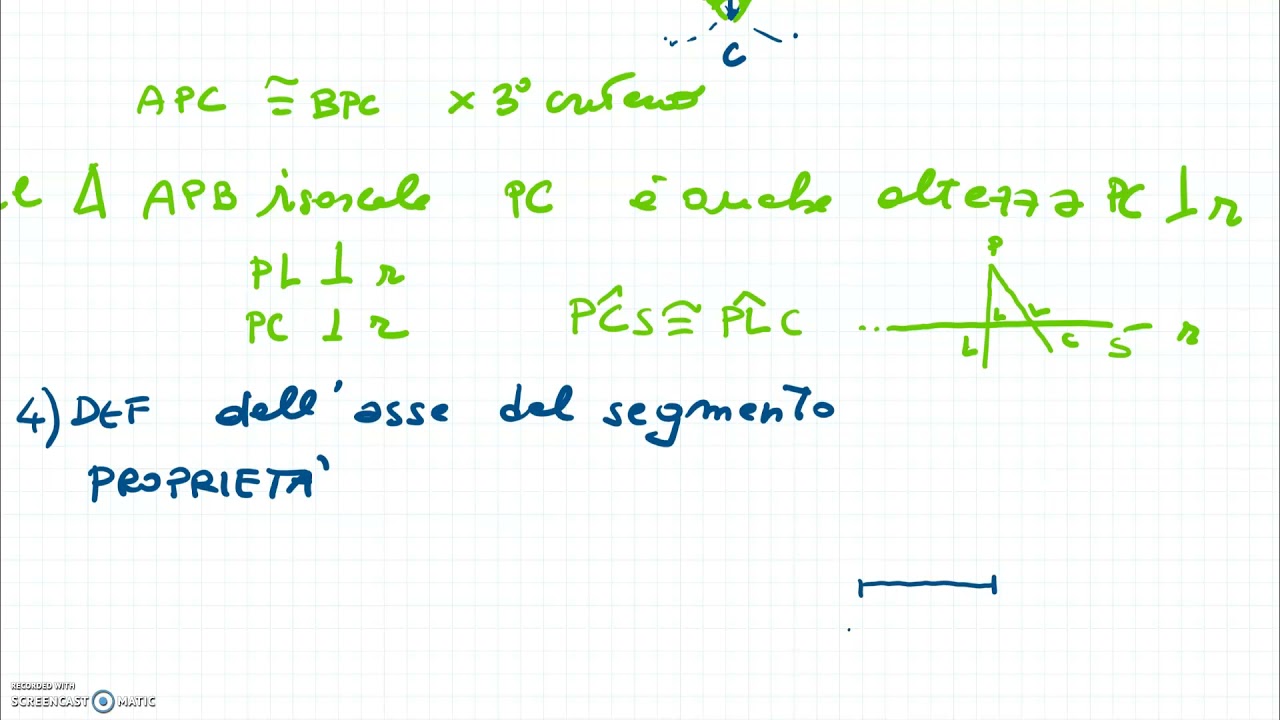 C
APC ≅ BPC × 3° criterio
el Δ APB isoscele PC è anche altezza PC ⊥ r
PL ⊥ r
PC ⊥ r
PĈS ≅ PL̂C
P
L C S r
4) DEF dell'asse del segmento
PROPRIETA'
RECORDED WITH
SCREENCAST MATIC